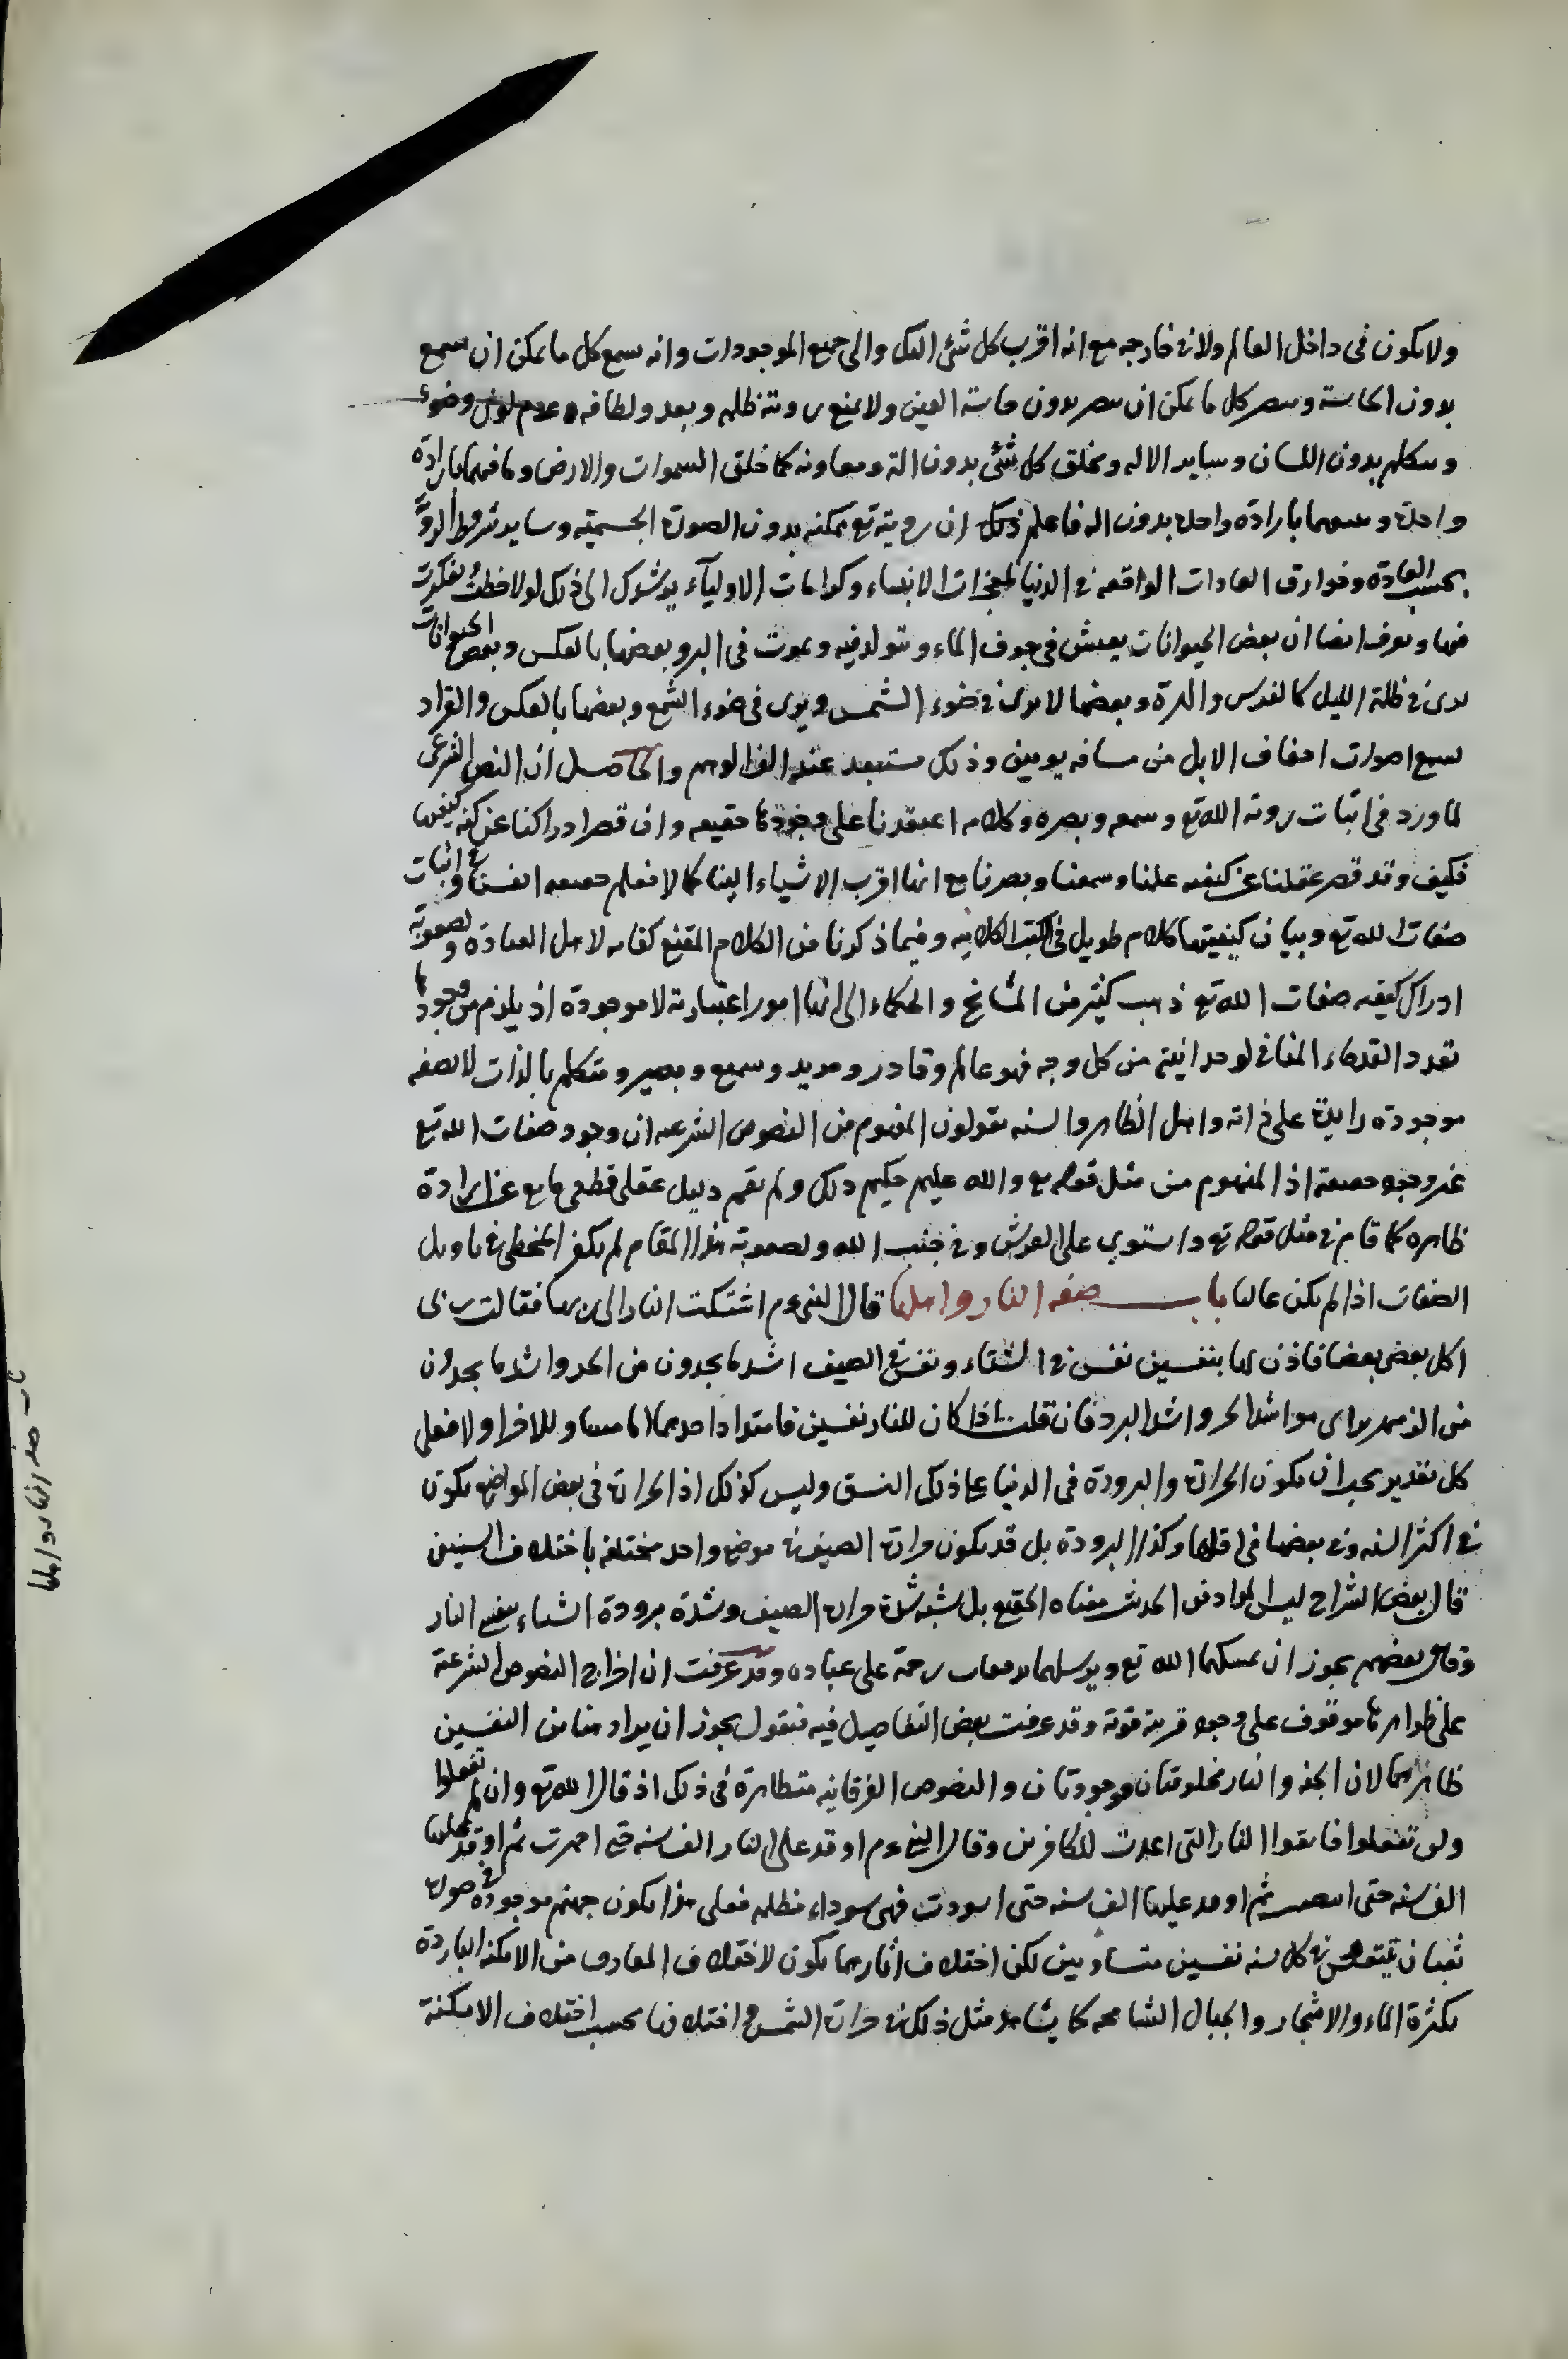 ولا يكون فى داخل العالم ولا فى خارجه مع انه اقرب كل شئ اليك والى جميع الموجودات وانه يسمع كل ما يمكن ان يسمع
بدون الحاسة ويبصر كل ما يمكن ان يبصر بدون حاسة العين ولا يمنع رويته ظلمة وبعد ولطافة وعدم لون وضوء
ويتكلم بدون اللسان وساير الاله ويخلق كل شئ بدون الة ومعاونة كما خلق السموات والارض وما فيهما بارادة
واحدة و بارادة واحدة بدون اله فاعلم ذلك ان رويته تع ممكنه بدون الصورة الجسمية وساير شروط الروية
بحسب العادة وخوارق العادات الواقعه فى الدنيا لمعجزات الانبياء وكرامات الاولياء يرشدك الى ذلك لو لاحظت وتفكرت
فيها وتعرف ايضا ان بعض الحيوانات يعيش فى جوف الماء ويتولد فيه ويموت فى البر وبعضها بالعكس وبعض الحيوانات
يرى فى ظلمة الليل كالفرس والهرة وبعضها لا يرى فى ضوء الشمس ويرى فى ضوء الشمع وبعضها بالعكس والقراد
يسمع اصوات اخفاف الابل من مسافه يومين وذلك مستبعد عند الوهم والحاصل ان النص الشرعى
لما ورد فى اثبات روية الله تع وسمعه وبصره وكلامه اعتقدنا على وجودها حقيقه وان قصر ادراكنا عن كنه كيفيتها
فكيف وقد قصر عقلنا عن كيفيه علمنا وسمعنا وبصرنا مع انها اقرب الاشياء الينا كما لا نعلم حقيقه انفسنا وفى اثبات
صفات الله تع وبيان كيفيتها كلام طويل فى الكتب الكلاميه وفيما ذكرنا من الكلام المقنع كفايه لاهل العبادة ولصعوبة
ادراك كيفيه صفات الله تع ذهب كثير من المشايخ والحكماء الى انها امور اعتبارية لا موجودة اذ يلزم من وجودها
تعدد القدماء المنافى لوحدانيته من كل وجه فهو عالم وقادر ومريد وسميع وبصير ومتكلم بالذات لا بصفه
موجوده زايدة على ذاته واهل الظاهر والسنه يقولون المفهوم من النصوص الشرعيه ان وجود صفات الله تع
غير وجوده حقيقة اذ المفهوم من مثل قوله تع والله عليم حكيم ذلك ولم يقم دليل عقلى قطعى مانع عن ارادة
ظاهره كما قام فى مثل قوله تع واستوى على العرش وفى جنب الله ولصعوبة هذا المقام لم يكفر المخطى فى تاويل
الصفات اذا لم يكن عاليا باب صفه النار واهلها قال النبى عم اشتكت النار الى ربها فقالت ربى
اكل بعضى بعضا فاذن لها بنفسين نفس فى الشتاء ونفس فى الصيف اشد ما يجدون من الحر واشد ما يجدون
من الزمهرير اى هو اشد الحر واشد البرد فان قلت اذا كان للنار نفسين فامتداد احدهما اما مساو للاخر او لا فعلى
كل تقدير يجب ان يكون الحرارة والبرودة فى الدنيا على ذلك النسق وليس كذلك اذ الحرارة فى بعض المواضع يكون
فى اكثر السنه وفى بعضها فى اقلها وكذا البرودة بل قد يكون حرارة الصيف فى موضع واحد مختلفه باختلاف السنين
قال بعض الشراح ليس المراد من الحديث معناه الحقيقى بل شبه شدة حرارة الصيف وشدة برودة الشتاء بنفس النار
وقال بعضهم يجوز ان يمسكهما الله تع ويرسلهما رحمة على عباده وقد عرفت ان اخراج النصوص الشرعية
على ظواهرها موقوف على وجود قرينة قوية وقد عرفت بعض التفاصيل فيه فنقول يجوز ان يراد هنا من النفسين
ظاهرهما لان الجنه والنار مخلوقتان موجودتان والنصوص الفرقانيه متظاهرة فى ذلك اذ قال الله تع وان لم تفعلوا
ولن تفعلوا فاتقوا النار التى اعدت للكافرين وقال النبى عم اوقد على النار الف سنه حتى احمرت ثم اوقد عليها
الف سنه حتى ابيضت ثم اوقد عليها الف سنه حتى اسودت فهى سوداء مظلمه فعلى هذا يكون جهنم موجوده فى صورة
ثعبان يتنفس فى كل سنه نفسين متساويين لكن اختلاف اثارهما يكون لاختلاف المعارف من الامكنة الباردة
بكثرة الماء والاشجار والجبال الشامخه كما يشاهد مثل ذلك فى حرارة الشمس واختلافها بحسب اختلاف الامكنة
باب صفة النار واهلها